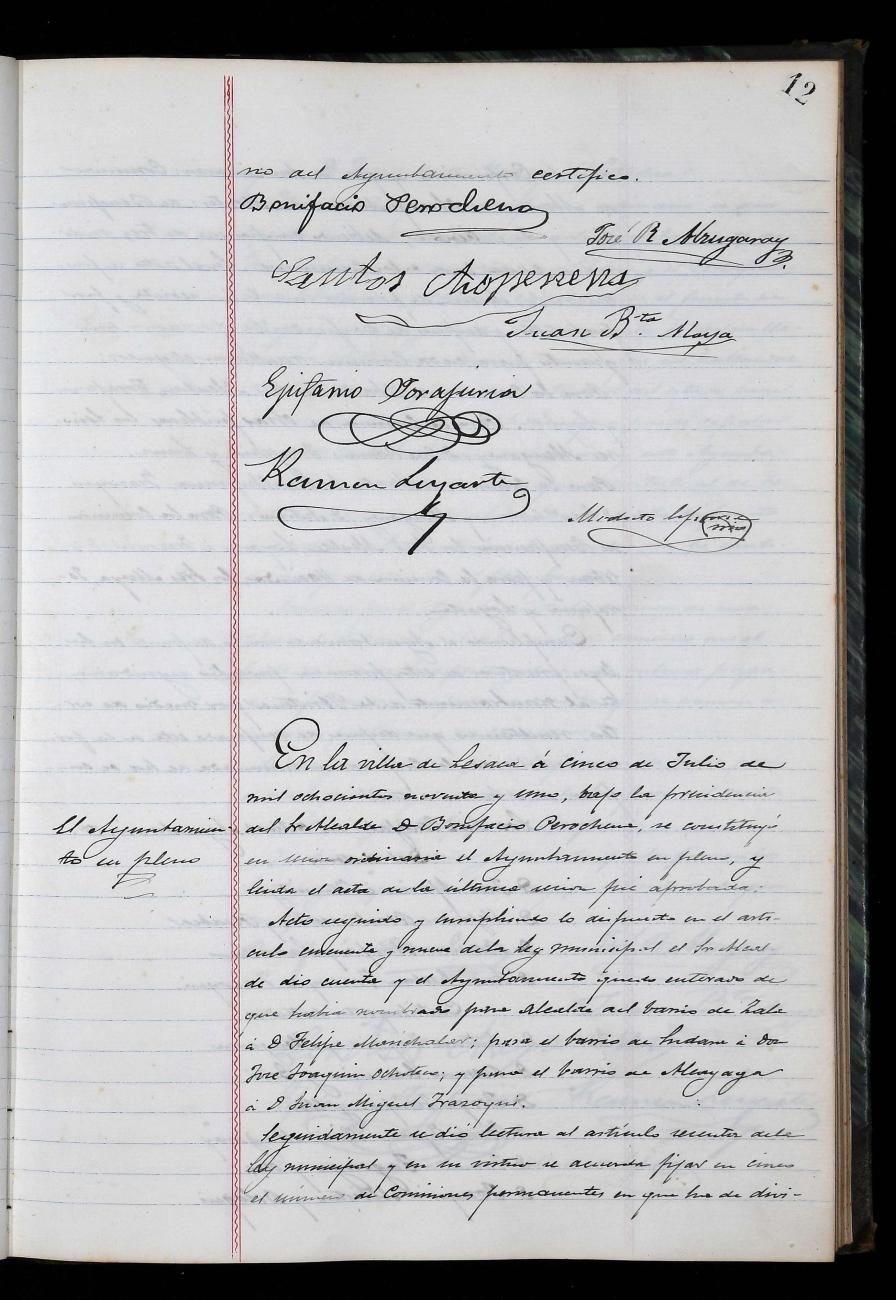 12
rio del Ayuntamiento certifico.
Bonifacio Perochena
José R Abrugaray
Santos
Juan Bta. Moya
Epifanio
Ramon Luyarte
Modesto
En la villa de Lesaca á cinco de Julio de
mil ochocientos noventa y uno, bajo la presidencia
El Ayuntamien-
to en pleno
del Sr Alcalde D Bonifacio Perochena, se constituyó
en sesion ordinaria el Ayuntamiento en pleno, y
leida el acta de la última sesion fué aprobada.
Acto seguido y cumpliendo lo dispuesto en el arti-
culo cincuenta y nueve de la ley municipal el Sr Alcal
de dio cuenta y el Ayuntamiento quedo enterado de
que habia nombrado para Alcalde del barrio de Zala
á D Felipe Marichalar; para el barrio de Endara á Don
José Joaquin Ochoteco; y para el barrio de Alcayaga
á D Juan Miguel Irazoqui.
Seguidamente se dió lectura al artículo sesenta de la
ley municipal y en su virtud se acuerda fijar en cinco
el número de Comisiones permanentes en que ha de divi-